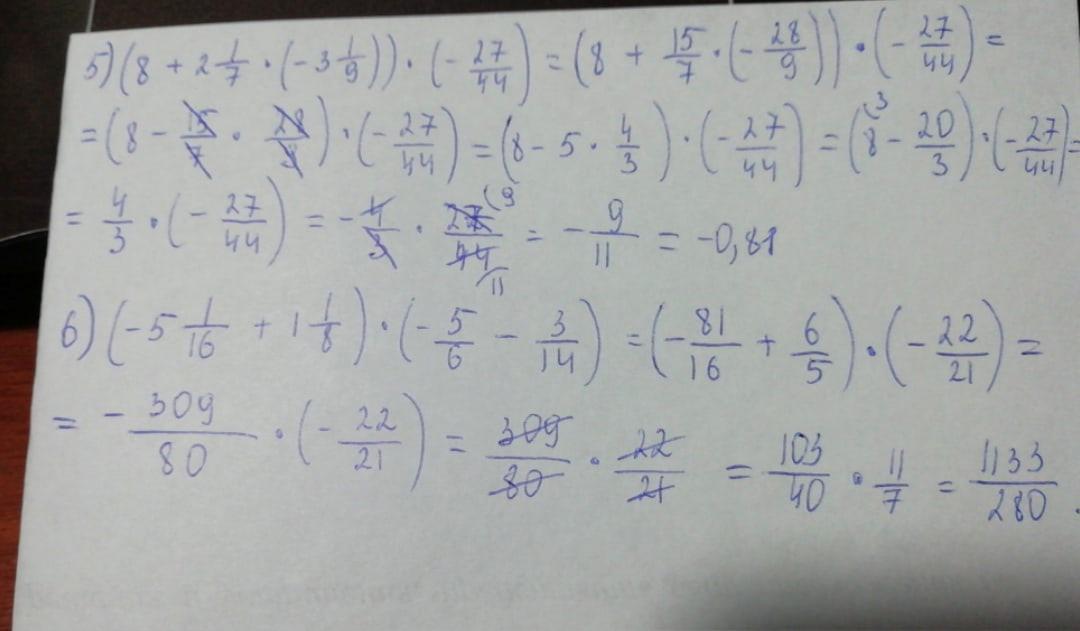 5) (8 + 2 1/7 · (-3 1/9)) · (- 27/44) = (8 + 15/7 · (- 28/9)) · (- 27/44) =
= (8 - 15/7 · 28/9) · (- 27/44) = (8 - 5 · 4/3) · (- 27/44) = (8 (3 - 20/3) · (- 27/44) =
= 4/3 · (- 27/44) = - 4/3 · 27 (9/44 (11 = - 9/11 = -0,81
6) (-5 1/16 + 1 1/8) · (- 5/6 - 3/14) = (- 81/16 + 6/5) · (- 22/21) =
= - 309/80 · (- 22/21) = 309/80 · 22/21 = 103/40 · 11/7 = 1133/280 .